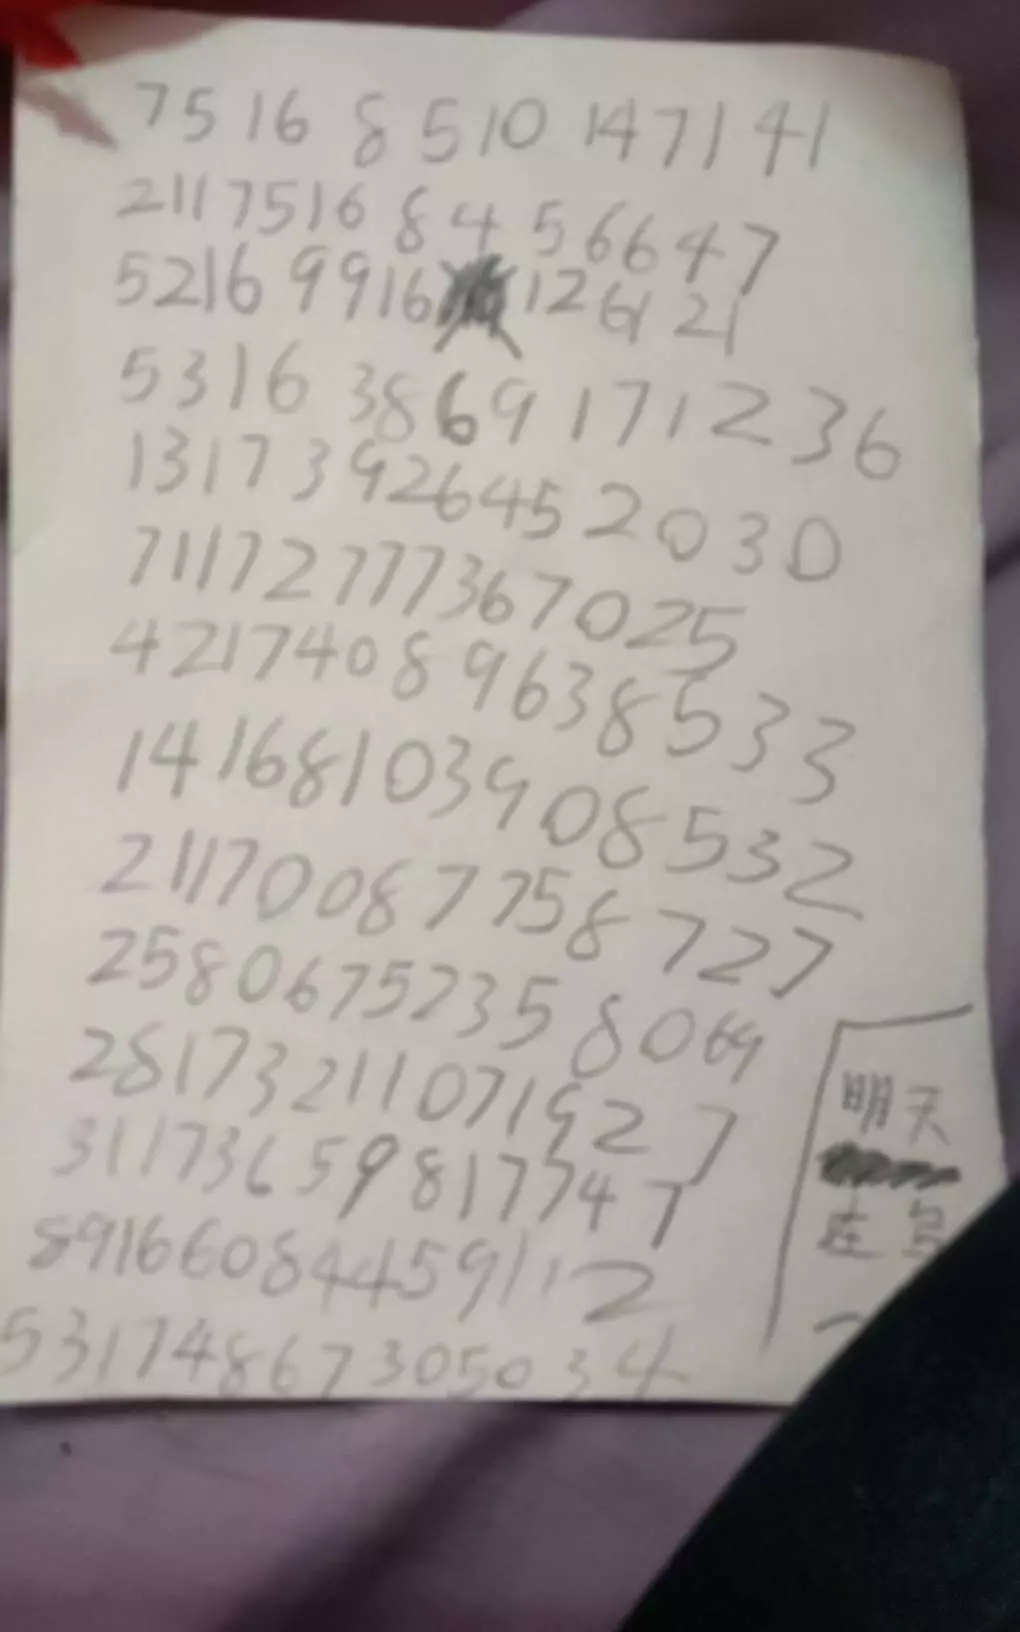 7516 8 510 147141
2117516 84 56647
5216 9916 126121
5316 38691712 36
1317 392645 2030
7117277736 7025
421740896385 33
141681039085 32
21170087758 727
2580675235 8069
281732110719 27
311736598177 47
891660844591 12
531748673050 34
明天